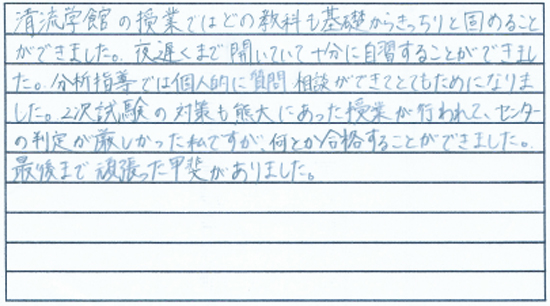 清流学館の授業ではどの教科も基礎からきっちりと固めること
ができました。夜遅くまで開いていて十分に自習することができまし
た。分析指導では個人的に質問相談ができてとてもためになりま
した。2次試験の対策も熊大にあった授業が行われて、センター
の判定が厳しかった私ですが、何とか合格することができました。
最後まで頑張った甲斐がありました。